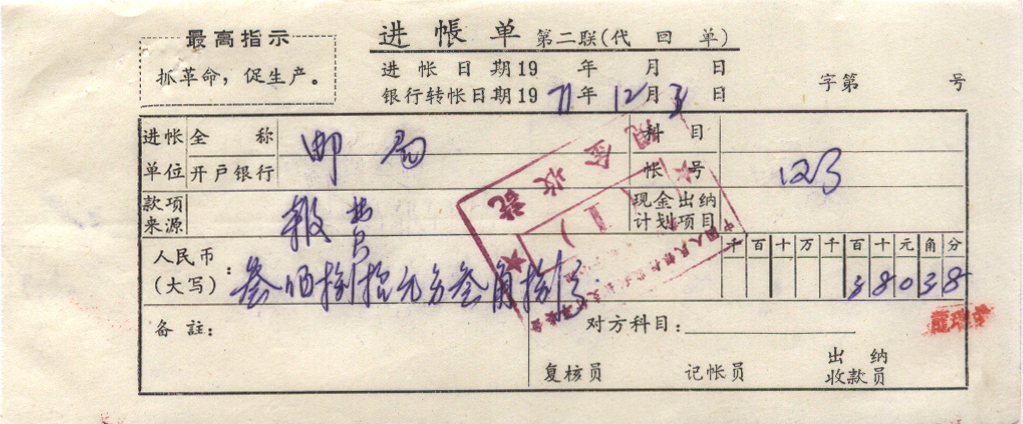 最高指示
抓革命，促生产。
进帐单 第二联(代回单)
进帐日期19 年 月 日
银行转帐日期1971年12月3日
字第 号
进帐单位 全称 邮局 科目
开户银行 帐号 123
款项来源 报费 现金出纳计划项目
人民币(大写)： 叁佰捌拾元另叁角捌分
千百十万千百十元角分
38038
备註：
对方科目：
复核员 记帐员 出纳收款员
现金收讫